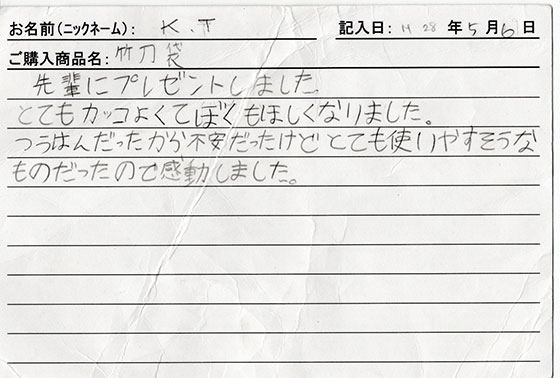 お名前(ニックネーム): K.T 記入日: H 28 年 5 月 6 日
ご購入商品名: 竹刀袋
先輩にプレゼントしました。
とてもカッコよくてぼくもほしくなりました。
つうはんだったから不安だったけどとても使いやすそうな
ものだったので感動しました。